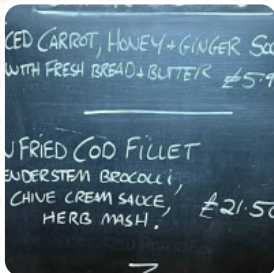 CED CARROT, HONEY + GINGER SO
WITH FRESH BREAD + BUTTER £5.9
N FRIED COD FILLET
ENDERSTEM BROCOLLI,
CHIVE CREAM SAUCE, £21.50
HERB MASH.